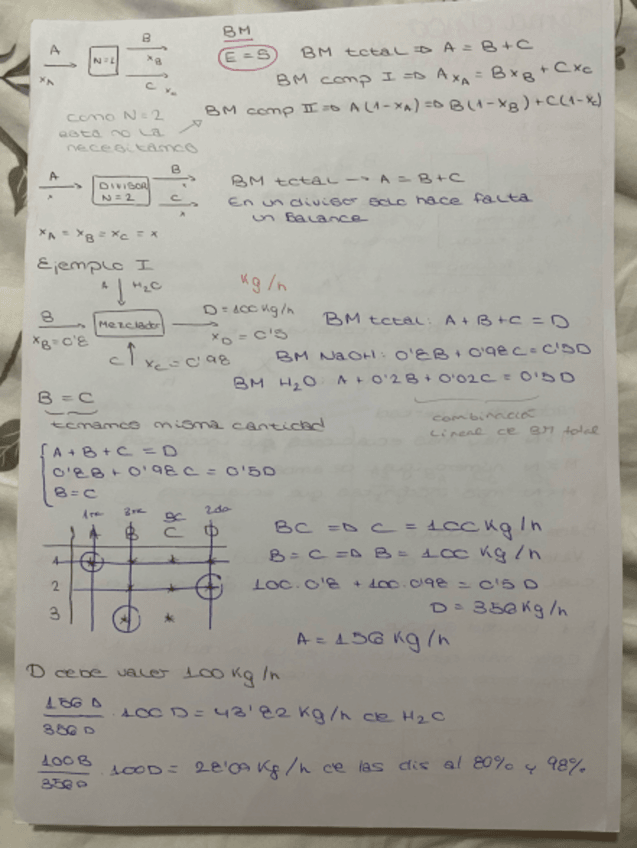 BM
A
x_A
N=2
B
x_B
C
x_C
E = S
BM total ⇒ A = B + C
BM comp I ⇒ A x_A = B x_B + C x_C
BM comp II ⇒ A(1-x_A) ⇒ B(1-x_B) + C(1-x_C)
como N=2
esta no la
necesitamos
A
x
DIVISOR
N=2
B
x
C
x
BM total → A = B + C
En un divisor solo hace falta
un Balance
x_A = x_B = x_C = x
Ejemplo I
Kg/h
A H2O
B
x_B = 0'8
Mezclador
D = 100 Kg/h
x_D = 0'5
C x_C = 0'98
BM total: A + B + C = D
BM NaOH: 0'8B + 0'98C = 0'5D
BM H2O: A + 0'2B + 0'02C = 0'5D
B = C
tomamos misma cantidad
combinación
lineal de BM total
A + B + C = D
0'8B + 0'98C = 0'5D
B = C
1ra 3ra BC 2da
A B C D
1
2
3
BC ⇒ C = 100 Kg/h
B = C ⇒ B = 100 Kg/h
100·0'8 + 100·0'98 = 0'5D
D = 356 Kg/h
A = 156 Kg/h
D debe valer 100 Kg/h
· 100D = 43'82 Kg/h de H2O
100B
· 100D = 28'09 Kg/h de las dis al 80% y 98%